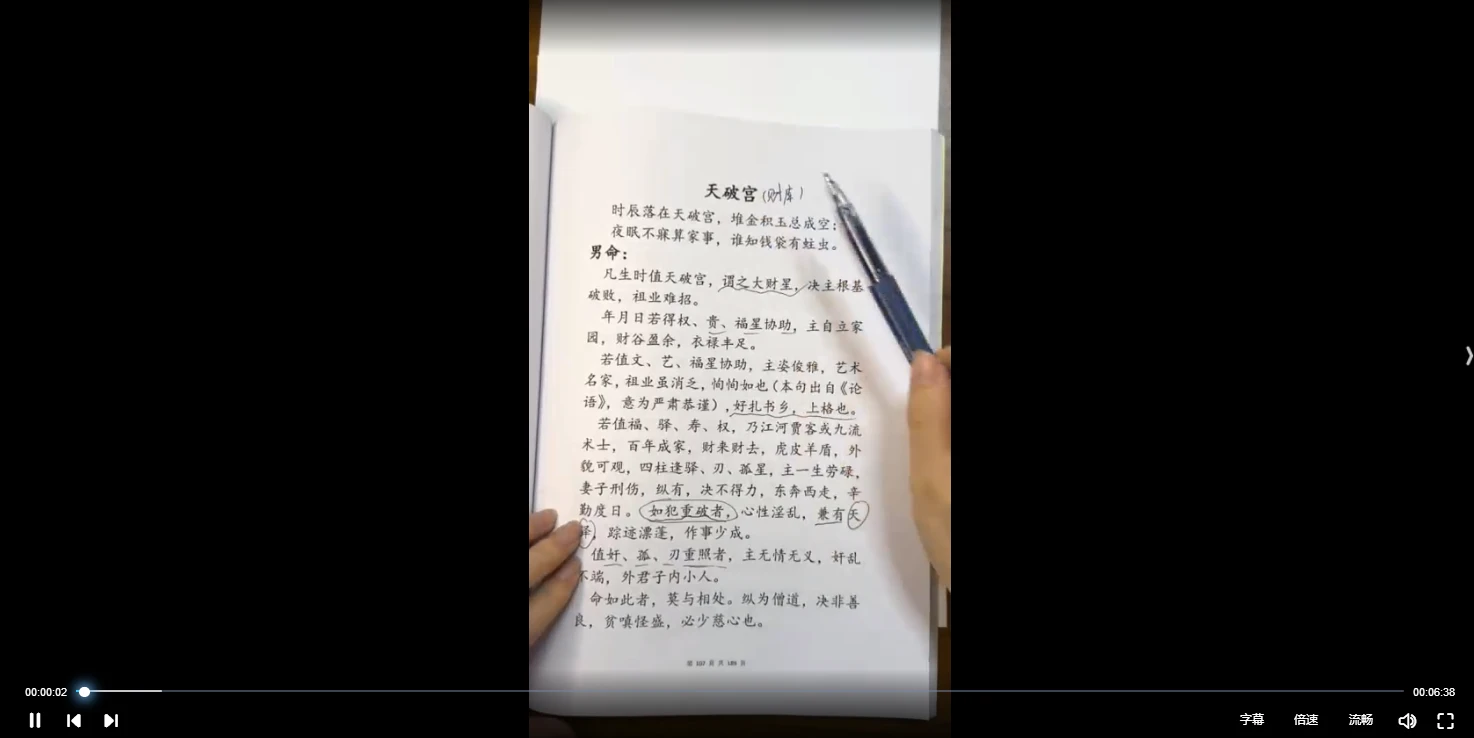 天破宫(财库)
时辰落在天破宫，堆金积玉总成空；
夜眠不寐算家事，谁知钱袋有蛀虫。
男命：
凡生时值天破宫，谓之大财星，决主根基
破败，祖业难招。
年月日若得权、贵、福星协助，主自立家
园，财谷盈余，衣禄丰足。
若值文、艺、福星协助，主姿俊雅，艺术
名家，祖业虽消乏，恂恂如也（本句出自《论
语》，意为严肃恭谨），好扎书乡，上格也。
若值福、驿、寿、权，乃江河贾客或九流
术士，百年成家，财来财去，虎皮羊盾，外
貌可观，四柱逢驿、刃、孤星，主一生劳碌，
妻子刑伤，纵有，决不得力，东奔西走，辛
勤度日。如犯重破者，心性淫乱，兼有天
驿，踪迹漂蓬，作事少成。
值奸、孤、刃重照者，主无情无义，奸乱
不端，外君子内小人。
命如此者，莫与相处。纵为僧道，决非善
良，贫嗔怪盛，必少慈心也。
第 107 页 共 189 页
00:00:02
00:06:38
字幕
倍速
流畅